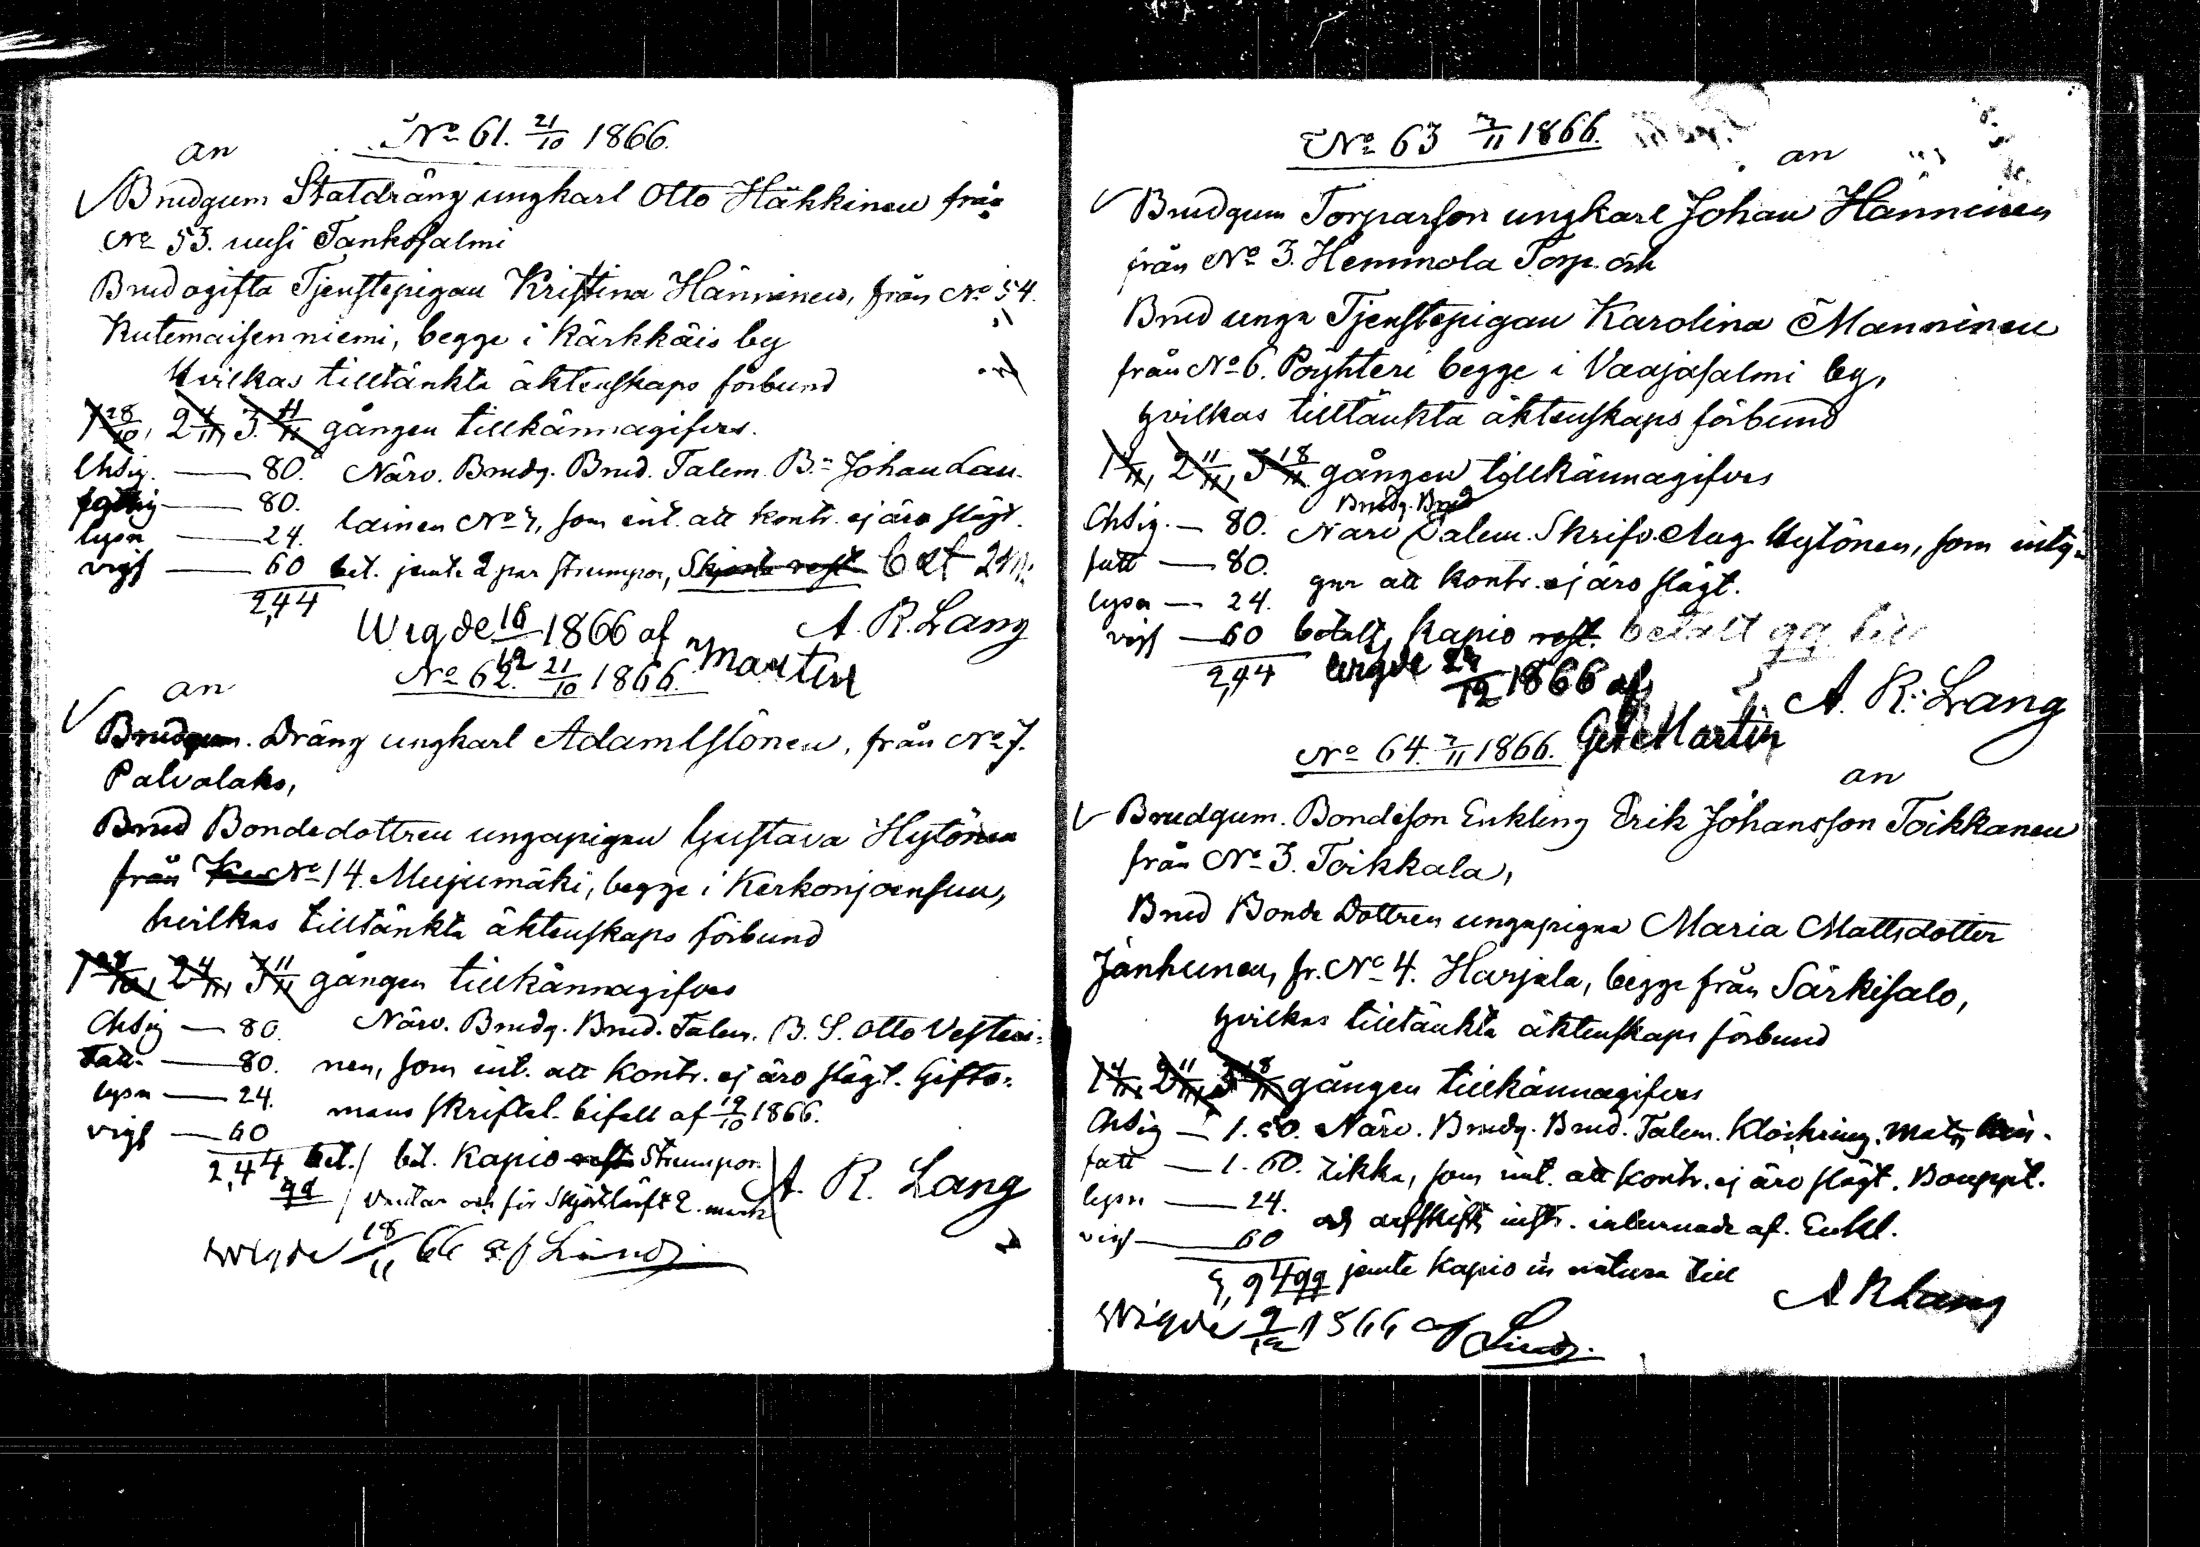 No 61. 21/10 1866.
an
Brudgum Statdräng ungkarl Otto Häkkinen från
No 53. uusi Tankosalmi
Brud ogifta Tjenstepigan Kristina Hänninen, från No 54.
Kutemaisenniemi, begge i Kärkkäis by
Hvilkas tilltänkta äktenskaps förbund
1 28/10, 2 4/11, 3. 11/11 gången tillkännagifves.
Chsig. — 80. Närv. Brudg. Brud. Talem. Bn Johan Lau-
fattig — 80. lainen No 4, som int. att kontr. ej äro slägt.
lysn — 24.
vigs — 60 bet. jemte 2 par strumpor, Skjorta rest bet 2 m.
2,44
Wigde 16/12 1866 af Martin
A. R. Lang
No 62. 21/10 1866.
an
Brudgum. Dräng ungkarl Adam Ilönen, från No 7.
Palvalaks,
Brud Bondedottren ungapigan Gustava Hytönen
från No 14. Mujumäki, begge i Kerkonjoensuu,
hvilkas tilltänkta äktenskaps förbund
1 28/10, 2 4/11, 3 11/11 gången tillkännagifves
Chsig — 80. Närv. Brudg. Brud. Talem. B. S. Otto Vesteri-
Fatt. — 80. nen, som int. att Kontr. ej äro slägt. Gifto-
lysn — 24. mans skriftel. bifall af 19/10 1866.
vigs — 60
2,44 bet. / bet. Kapio rest Strumpor.
qq / Vantar och för Skjortlärft 2. mark
A. R. Lang
Wigde 18/11 66 af Lind
No 63 3/11 1866.
an
Brudgum Torparson ungkarl Johan Hänninen
från No 3. Hemmola Torp. och
Brud unga Tjenstepigan Karolina Manninen
från No 6. Pöyhteri begge i Vaajasalmi by,
hvilkas tilltänkta äktenskaps förbund
1 4/11, 2 11/11, 3 18/11 gången tillkännagifves
Brudg. Brud
Chsig. — 80. Närv Talem. Skrifv. Aug Hytönen, som inty-
fatt — 80. gar att kontr. ej äro slägt.
lysn — 24.
vigs — 60 betalt, Kapio rest. betalt qq till
2,44 Wigde 26/12 1866 af
A. R. Lang
Martin
No 64. 3/11 1866.
an
Brudgum. Bondeson Enkling Erik Johansson Toikkanen
från No 3. Toikkala,
Brud Bonde Dottren ungapigan Maria Mattsdotter
Jänhunen, fr. No 4. Harjala, begge från Särkisalo,
hvilkas tilltänkta äktenskaps förbund
1 4/11, 2 11/11, 3 18/11 gången tillkännagifves
Chsig — 1. 50. Närv. Brudg. Brud. Talem. Klockring.
fatt — 1. 60. som int. att kontr. ej äro slägt. Bouppt.
lysn — 24. och afskift. instr. inlemnade af. Enkl.
vigs — 60
qq jemte Kapio in natura till
A R Lang
Wigde 9/12 1866 af Lind.